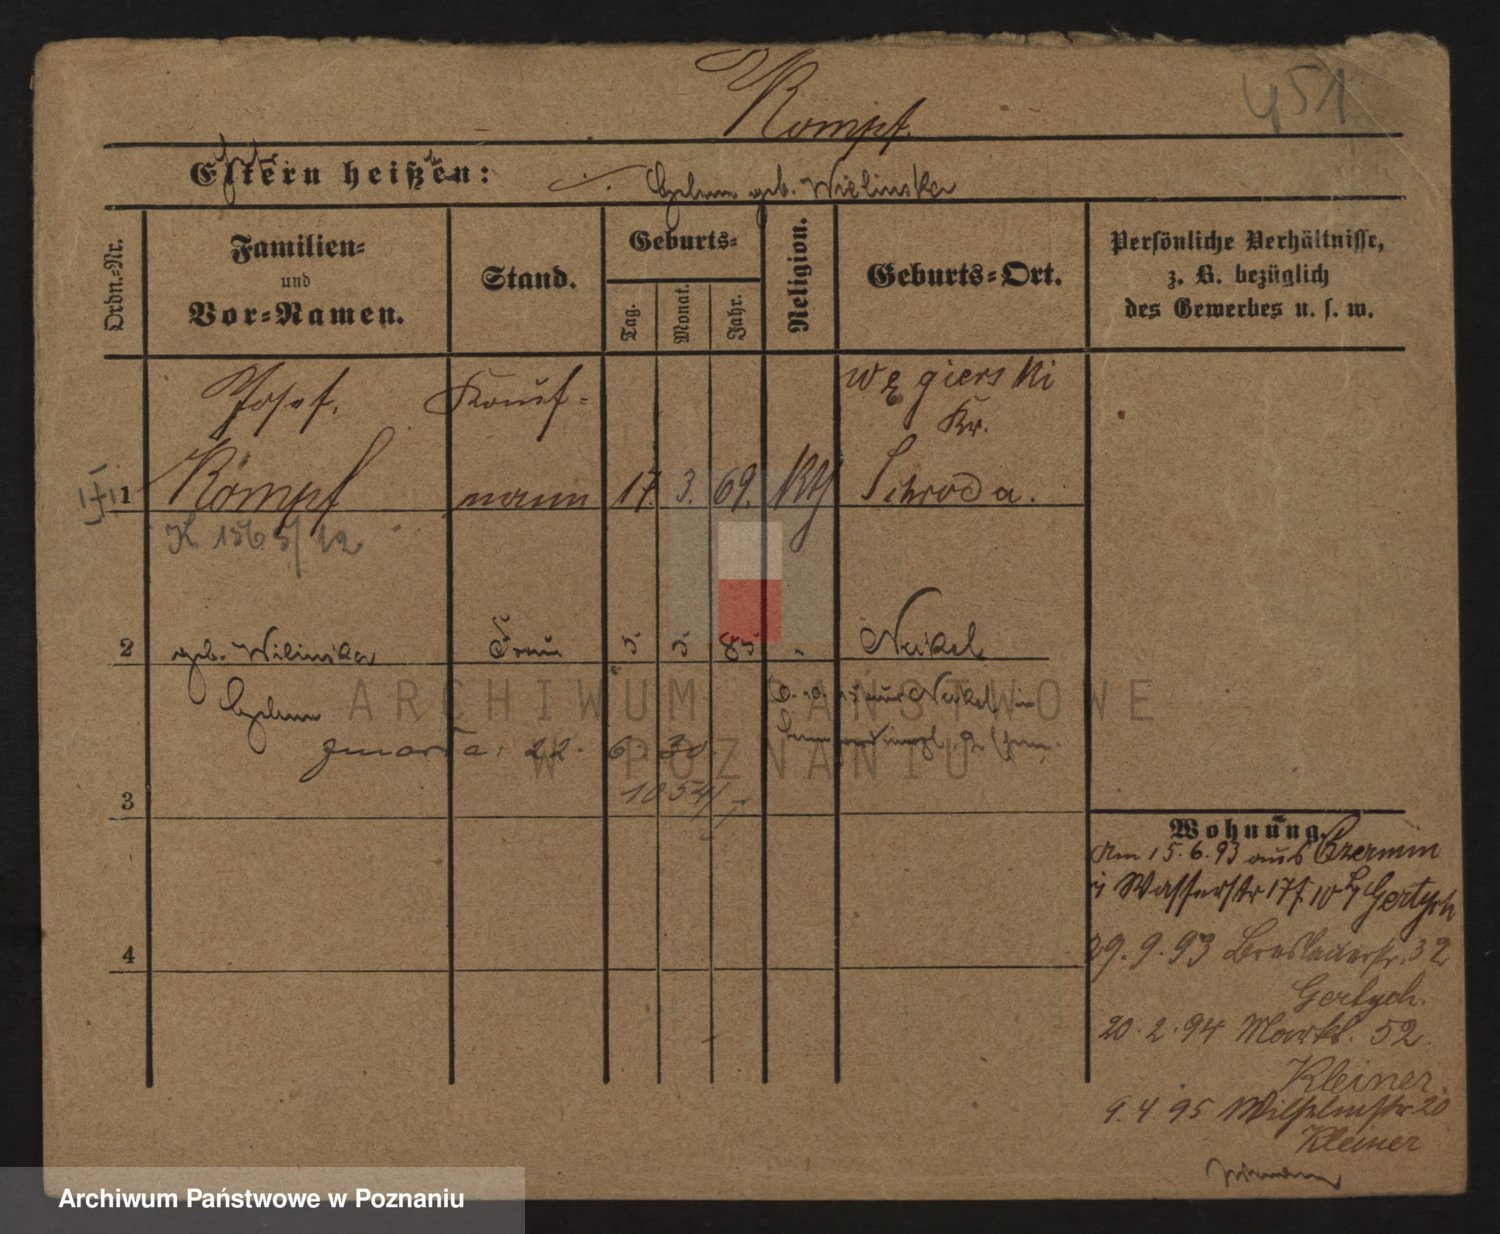 Kompf.
451
Eltern heißen:
geb. Wielinska
Ordn.-Nr.
Familien-
und
Vor-Namen.
Stand.
Geburts-
Tag.
Monat.
Jahr.
Religion.
Geburts-Ort.
Persönliche Verhältnisse,
z. B. bezüglich
des Gewerbes u. s. w.
Josef.
Kauf-
Węgierski
Kr.
1
Kömpf
mann
17.
3.
69.
Kth
Schroda.
K. 1565/22
2
geb. Wilinska
Frau
5
5
85
Neikel
zmarła: 22. 6. 30
1054/
3
4
Wohnung.
Am 15.6.93 aus Czermin
Wasserstr 17 Gertych
29.9.93 Breslauerstr. 32
Gertych.
20.2.94 Markt. 52.
Kleiner.
9.4.95 Wilhelmstr. 20
Kleiner
ARCHIWUM PAŃSTWOWE
W POZNANIU
Archiwum Państwowe w Poznaniu